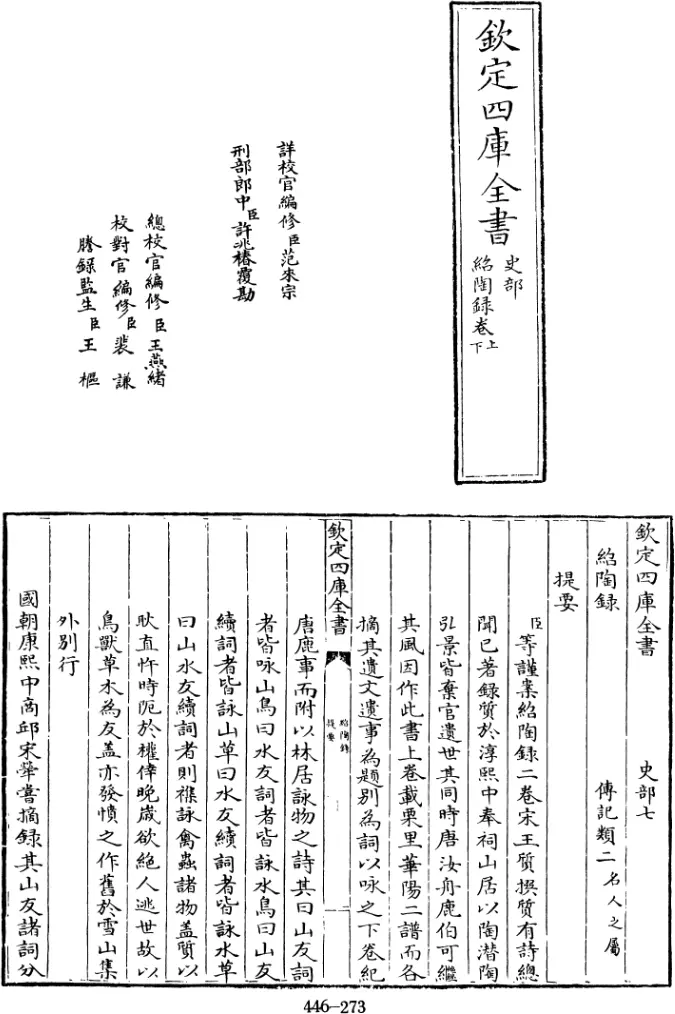 欽定四庫全書
史部
紹陶録卷上下
詳校官編修臣范來宗
刑部郎中臣許兆椿覆勘
總校官編修臣王燕緒
校對官編修臣裴謙
謄録監生臣王樞
欽定四庫全書 史部七
紹陶録 傳記類二名人之屬
提要
臣等謹案紹陶録二卷宋王質撰質有詩總
聞已著録質於淳熙中奉祠山居以陶潛陶
弘景皆棄官遺世其同時唐汝舟鹿伯可繼
其風因作此書上卷載栗里華陽二譜而各
摘其遺文遺事為題别為詞以咏之下卷紀
欽定四庫全書
紹陶録
提要
一
唐鹿事而附以林居詠物之詩其曰山友詞
者皆咏山鳥曰水友詞者皆詠水鳥曰山友
續詞者皆詠山草曰水友續詞者皆詠水草
曰山水友續詞者則襍詠禽蟲諸物蓋質以
耿直忤時阨於權倖晚歲欲絶人逃世故以
鳥獸草木為友盖亦發憤之作舊於雪山集
外别行
國朝康熙中商邱宋犖嘗摘録其山友諸詞分
446-273